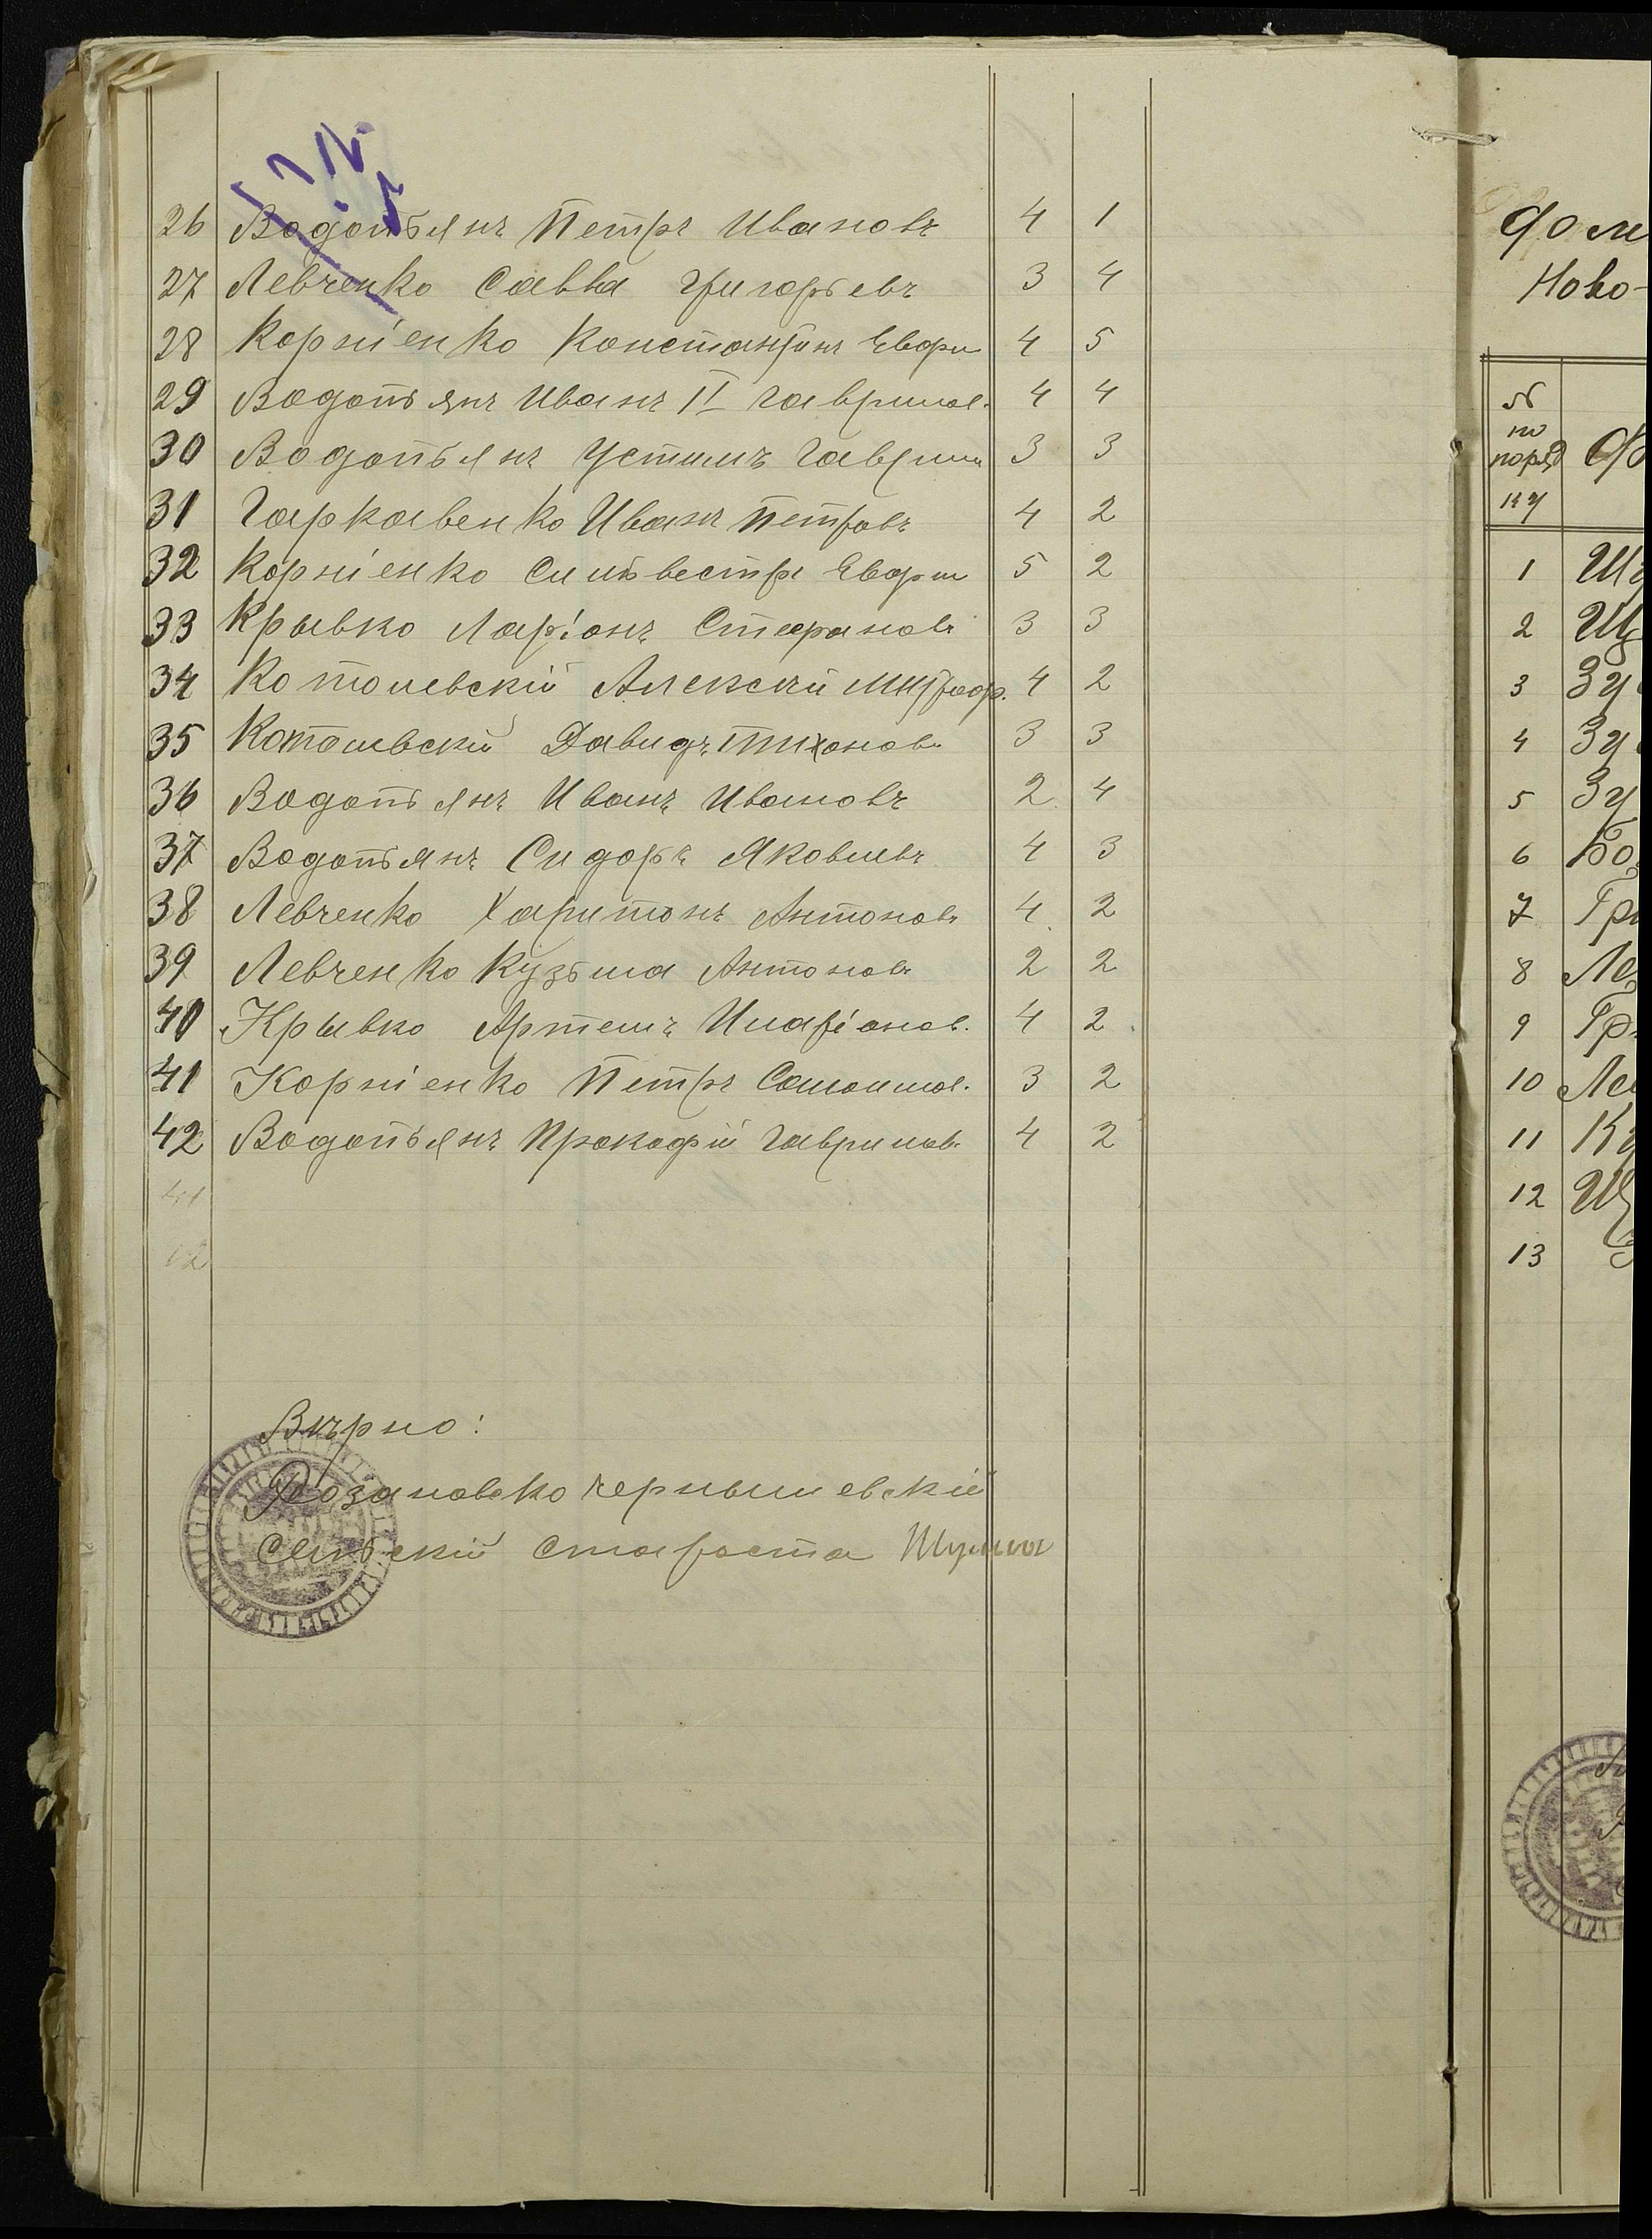 26 Водопьянъ Петръ Ивановъ 4 1
27 Левченко Савва Григорьевъ 3 4
28 Корніенко Константинъ Евфи 4 5
29 Водопьянъ Иванъ II Гаврилов. 4 4
30 Водопьянъ Устимъ Гаврил 3 3
31 Гаркавенко Иванъ Петровъ 4 2
32 Корніенко Сильвестръ Евфи 5 2
33 Крывко Ларіонъ Стефановъ 3 3
34 Котолевскій Алексѣй Митроф. 4 2
35 Котолевскій Давидъ Тихоновъ 3 3
36 Водопьянъ Иванъ Ивановъ 2 4
37 Водопьянъ Сидоръ Яковлевъ 4 3
38 Левченко Харитонъ Антоновъ 4 2
39 Левченко Кузьма Антоновъ 2 2
40 Крывко Артемъ Иларіонов. 4 2
41 Корніенко Петръ Самоилов. 3 2
42 Водопьянъ Прокофій Гаврилов. 4 2
41
42
Вѣрно:
Розановско Чернышевскій
Сельскій Староста
Ново-
№
по
поряд
ку
1
2
3 Зу
4 Зу
5 Зу
6
7
8
9
10
11
12
13